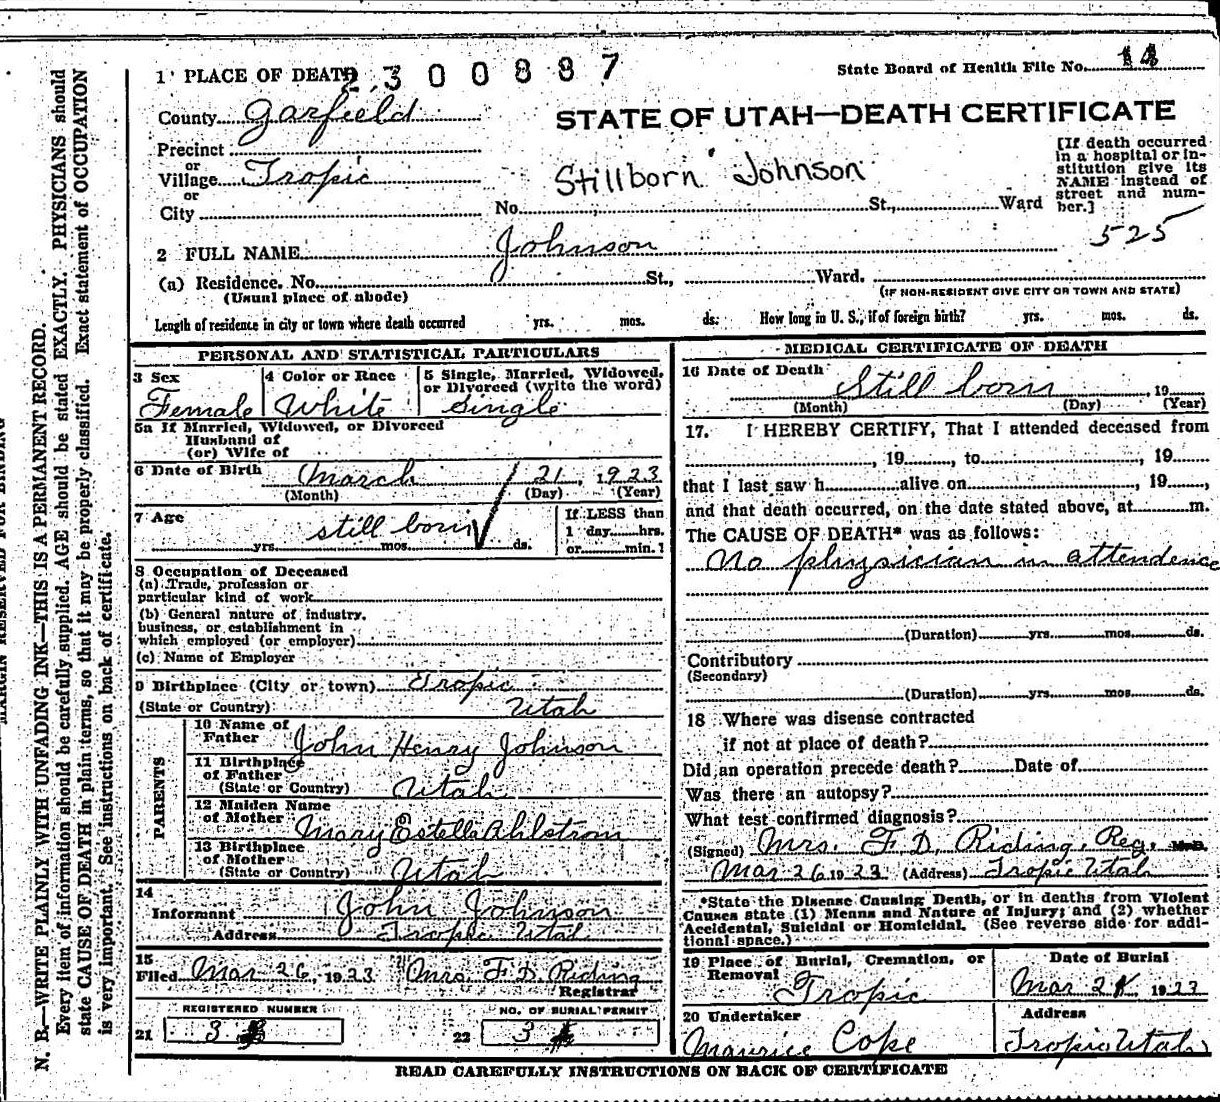 1 PLACE OF DEATH 2300887
State Board of Health File No. 14
County Garfield
STATE OF UTAH—DEATH CERTIFICATE
Precinct
or
Village Tropic
Stillborn Johnson
[If death occurred
in a hospital or in-
stitution give its
NAME instead of
street and num-
ber.]
or
City No. St., Ward
525
2 FULL NAME Johnson
(a) Residence. No. St., Ward.
(Usual place of abode)
(IF NON-RESIDENT GIVE CITY OR TOWN AND STATE)
Length of residence in city or town where death occurred yrs. mos. ds. How long in U. S., if of foreign birth? yrs. mos. ds.
PERSONAL AND STATISTICAL PARTICULARS
3 Sex
Female
4 Color or Race
White
5 Single, Married, Widowed,
or Divorced (write the word)
Single
5a If Married, Widowed, or Divorced
Husband of
(or) Wife of
6 Date of Birth March 21, 1923
(Month) (Day) (Year)
7 Age still born
yrs. mos. ds.
If LESS than
1 day hrs.
or min.?
8 Occupation of Deceased
(a) Trade, profession or
particular kind of work
(b) General nature of industry,
business, or establishment in
which employed (or employer)
(c) Name of Employer
9 Birthplace (City or town) Tropic
(State or Country) Utah
PARENTS
10 Name of
Father John Henry Johnson
11 Birthplace
of Father
(State or Country) Utah
12 Maiden Name
of Mother Mary Estella Ahlstrom
13 Birthplace
of Mother
(State or Country) Utah
14
Informant John Johnson
Address Tropic Utah
15
Filed Mar 26, 1923 Mrs. F. D. Riding
Registrar
REGISTERED NUMBER
21 3
NO. OF BURIAL PERMIT
22 3
MEDICAL CERTIFICATE OF DEATH
16 Date of Death Still born, 19
(Month) (Day) (Year)
17. I HEREBY CERTIFY, That I attended deceased from
, 19, to, 19
that I last saw h alive on, 19,
and that death occurred, on the date stated above, at m.
The CAUSE OF DEATH* was as follows:
No physician in attendence
(Duration) yrs. mos. ds.
Contributory
(Secondary)
(Duration) yrs. mos. ds.
18 Where was disease contracted
if not at place of death?
Did an operation precede death? Date of
Was there an autopsy?
What test confirmed diagnosis?
(Signed) Mrs. F. D. Riding, Reg. M.D.
Mar 26 1923 (Address) Tropic Utah
*State the Disease Causing Death, or in deaths from Violent
Causes state (1) Means and Nature of Injury; and (2) whether
Accidental, Suicidal or Homicidal. (See reverse side for addi-
tional space.)
19 Place of Burial, Cremation, or
Removal
Tropic
Date of Burial
Mar 21 1923
20 Undertaker
Maurice Cope
Address
Tropic Utah
READ CAREFULLY INSTRUCTIONS ON BACK OF CERTIFICATE
MARGIN RESERVED FOR BINDING
N. B.—WRITE PLAINLY WITH UNFADING INK—THIS IS A PERMANENT RECORD.
Every item of information should be carefully supplied. AGE should be stated EXACTLY. PHYSICIANS should
state CAUSE OF DEATH in plain terms, so that it may be properly classified. Exact statement of OCCUPATION
is very important. See instructions on back of certificate.